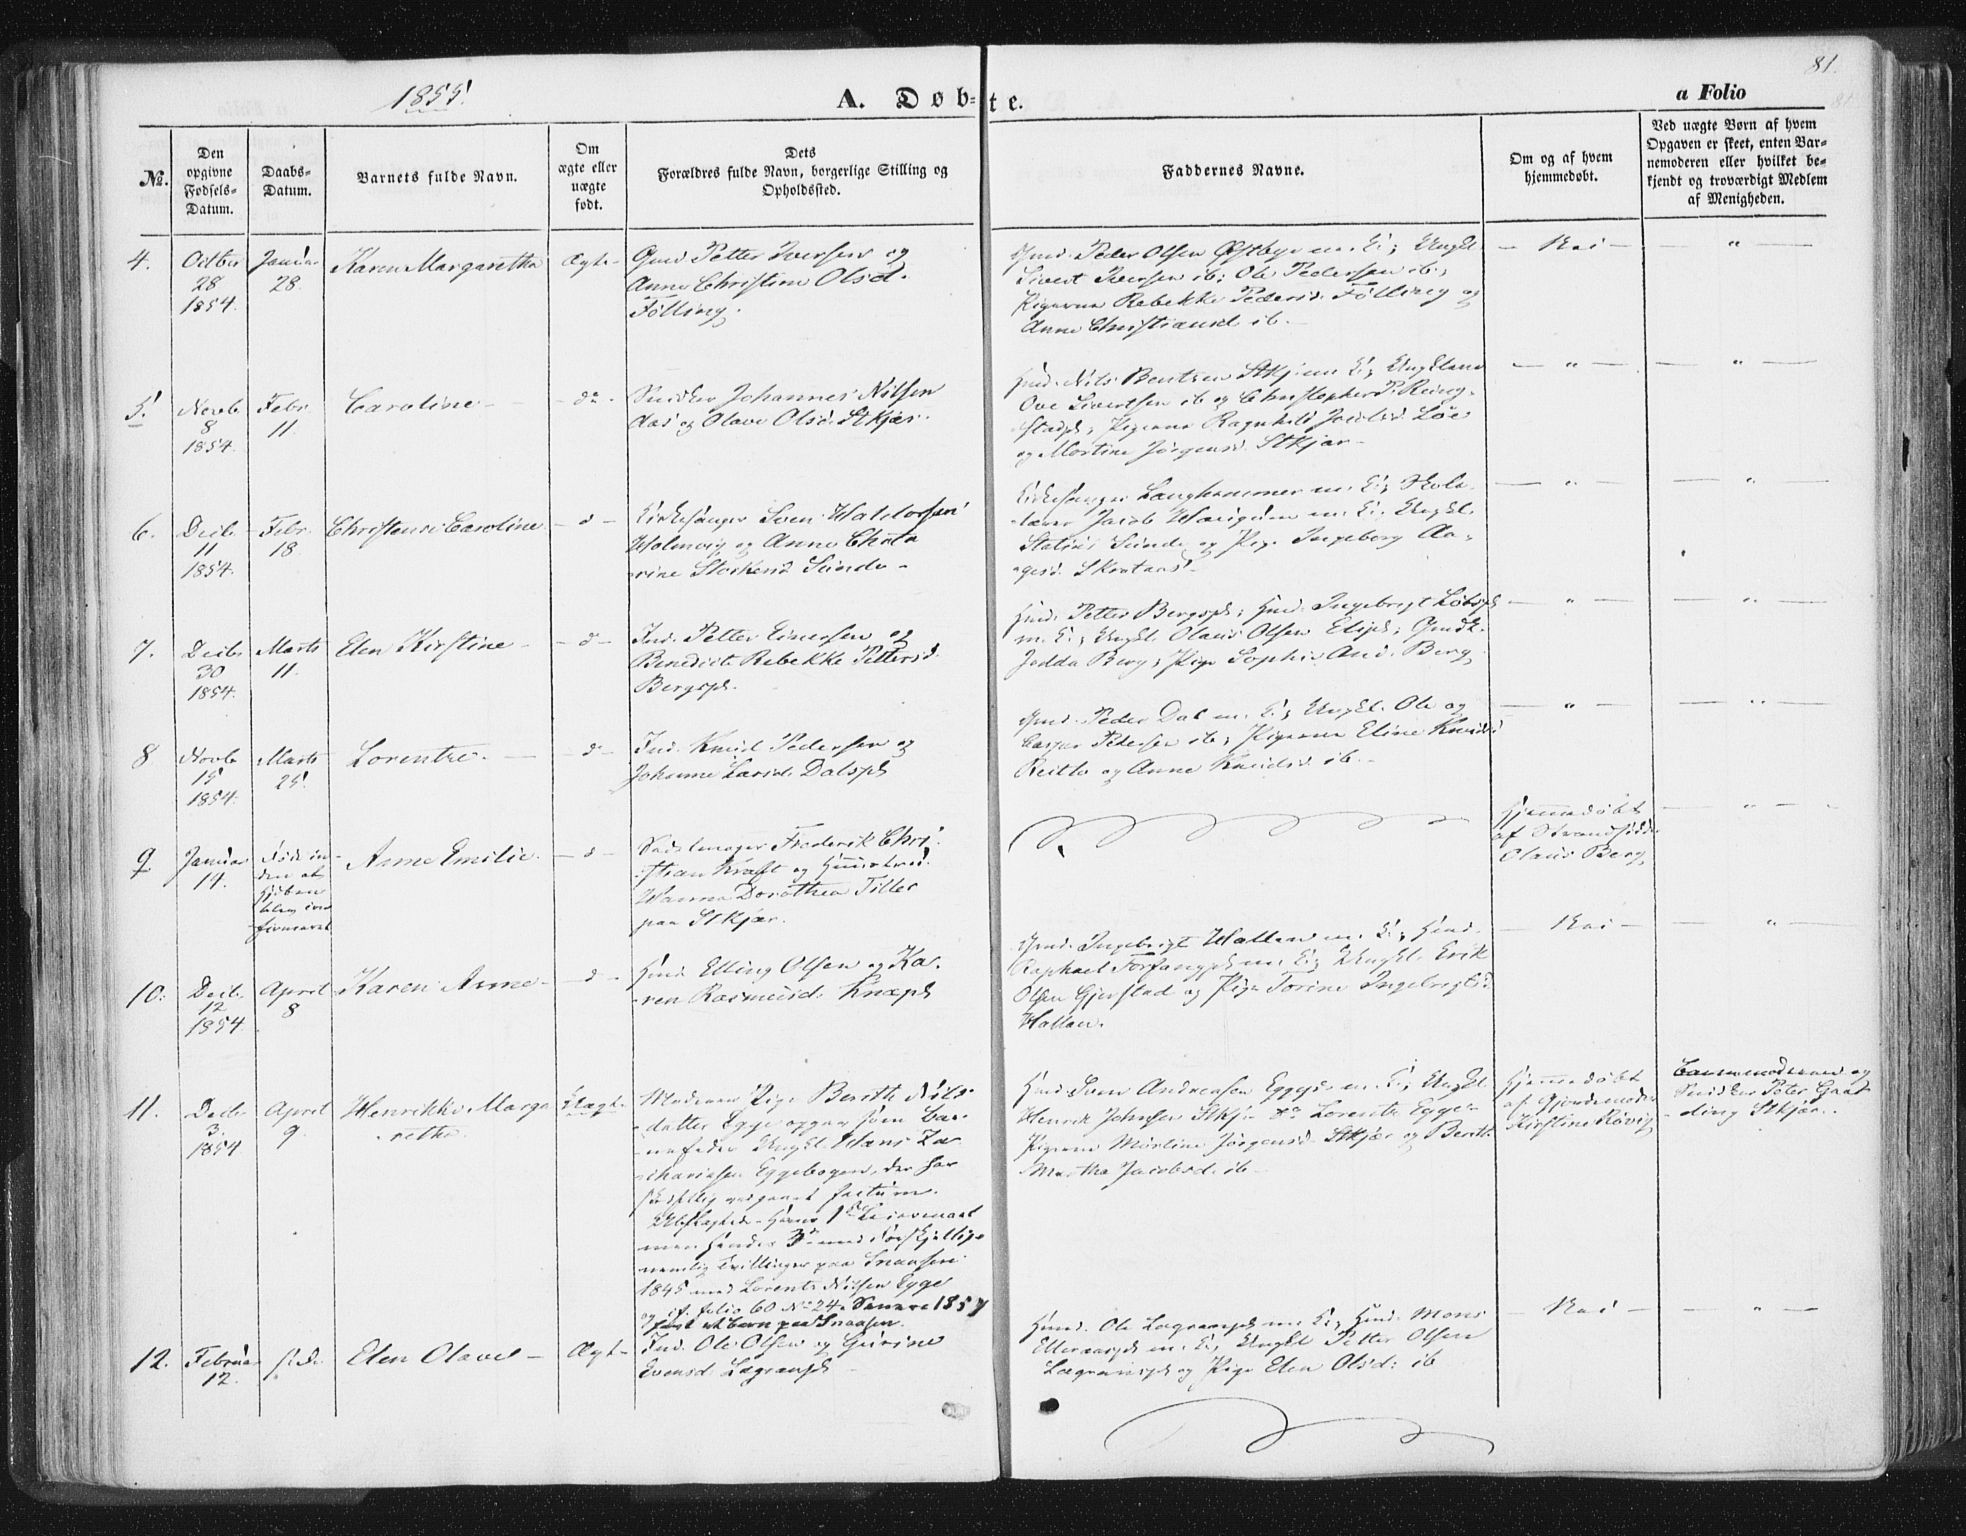 81.
1855.
A. Døb-
te.
a Folio
81
No.
Den
opgivne
Fødsels-
Datum.
Daabs-
Datum.
Barnets fulde Navn.
Om
ægte eller
uægte
født.
Dets
Forældres fulde Navn, borgerlige Stilling og
Opholdssted.
Faddernes Navne.
Om og af hvem
hjemmedøbt.
Ved uægte Børn af hvem
Opgaven er skeet, enten Bar-
nemoderen eller hvilket be-
kjendt og troværdigt Medlem
af Menigheden.
4.
28
1854.
Januar
28.
Karen Margaretha
Ægte
Gmd Petter Iversen og
Anne Christine Olsd.
Følling.
Gmd. Peder Olsen Østbye m. K.; Ungkl.
Sivert Iversen ib; Ole Pedersen ib;
Pigerne Rebekke Pedersd. Følling og
Anne Christiansd ib.
Nei
5.
Novbr
8
1854.
Febr.
11
Caroline
do
Snidker Johannes Nilsen
og Olave Olsd. Stkjær.
Hmd. Nils Bentsen Stkjær m. K.; Ungkarl
Ove Sivertsen ib og Christopher P. Reing-
stadpl; Pigerne Ragnhild Jacobsd. Løe
og Martine Jørgensd. Stkjær
6.
Decbr
11
1854.
Febr.
18
Christense Caroline
d
Kirkesanger Sven Haldorsen
Holmvig og Anne Catha
rine Storkersd Sunde
Kirkesanger Langhammer m. K.; Skole-
lærer Jacob m. K.; Ungkl.
Sunde og Pige Ingeborg Aa-
gesd.
7.
Decbr
30
1854.
Marts
11.
Elen Kirstine
d
Ind. Petter Einersen og
Benedicte Rebekke Pettersd.
Bergspl.
Hmd. Petter Bergspl; Hmd. Ingebrigt
m. K.; Ungkl. Olaus Olsen
Berg; Pige Sophie And. Berg
8
Novbr
15
1854.
Marts
25.
Lorentze
d
Ind. Knud Pedersen og
Johanne Larsd. Dalspl
Gmd. Peder Dal m. K.; Ungkl. Ole og
Casper Pedersen ib; Pigerne Eline Knudsd
og Anne Knudsd ib.
9
Januar
14.
Anne Emilie
d
Sadelmager Frederik Chri-
stian Kraft og Hustru
Hanna Dorothea Tiller
paa Stkjær.
Hjemmedøbt
af Strandsidder
Olaus Berg
10.
Decbr.
12
1854.
April
8
Karen Anne
d
Hmd Elling Olsen og Ka-
ren Rasmusd. Knæpl
Gmd. Ingebrigt Hallan m. K.; Hmd.
Raphael Forfangpl m. K.; Ungkl. Erik
Olsen Gjerstad og Pige Torine Ingebrigtsd
Hallan.
Nei
11.
Decbr
3.
1854
April
9
Henrikke Marga
rethe
Uægte
Moderen Pige Berith Nils-
datter Egge opgav som Bar-
nefader Ungkl Hans Za-
chariasen Eggebogen, der har
factum.
Hans 1ste Leiermaal
men hendes 3de med
nemlig Tvillinger paa Snaasen
1845 med Lorents Nilsen Egge
og cf. folio 60 No 24. Senere 1857
født et barn paa Snaasen.
Hmd. Sven Andreasen Eggepl m. K.; Ungkl.
Henrik Johnsen Stkjær Lorents Egge
Pigerne Martine Jørgensd. Stkjær og Berith
Martha Jacobsd. ib
Hjemmedøbt
af Gjordemoder
Kirstine Røvig
Barnemoderen og
Snidker Peter Graf-
ding Stkjær.
12.
Februar
12.
Elen Olave
Ægte
Ind. Ole Olsen og Gurine
Evensd. Lægranpl
Hmd. Ole Lægranpl m. K.; Hmd. Mons
m. K.; Ungkl Petter Olsen
Lægranpl og Pige Elen Olsd. ib
Nei